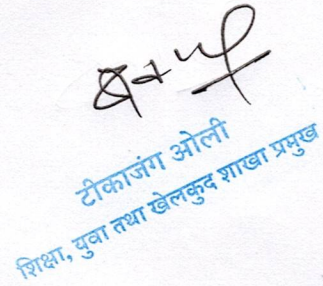 टीकाजंग ओली
शिक्षा, युवा तथा खेलकुद शाखा प्रमुख